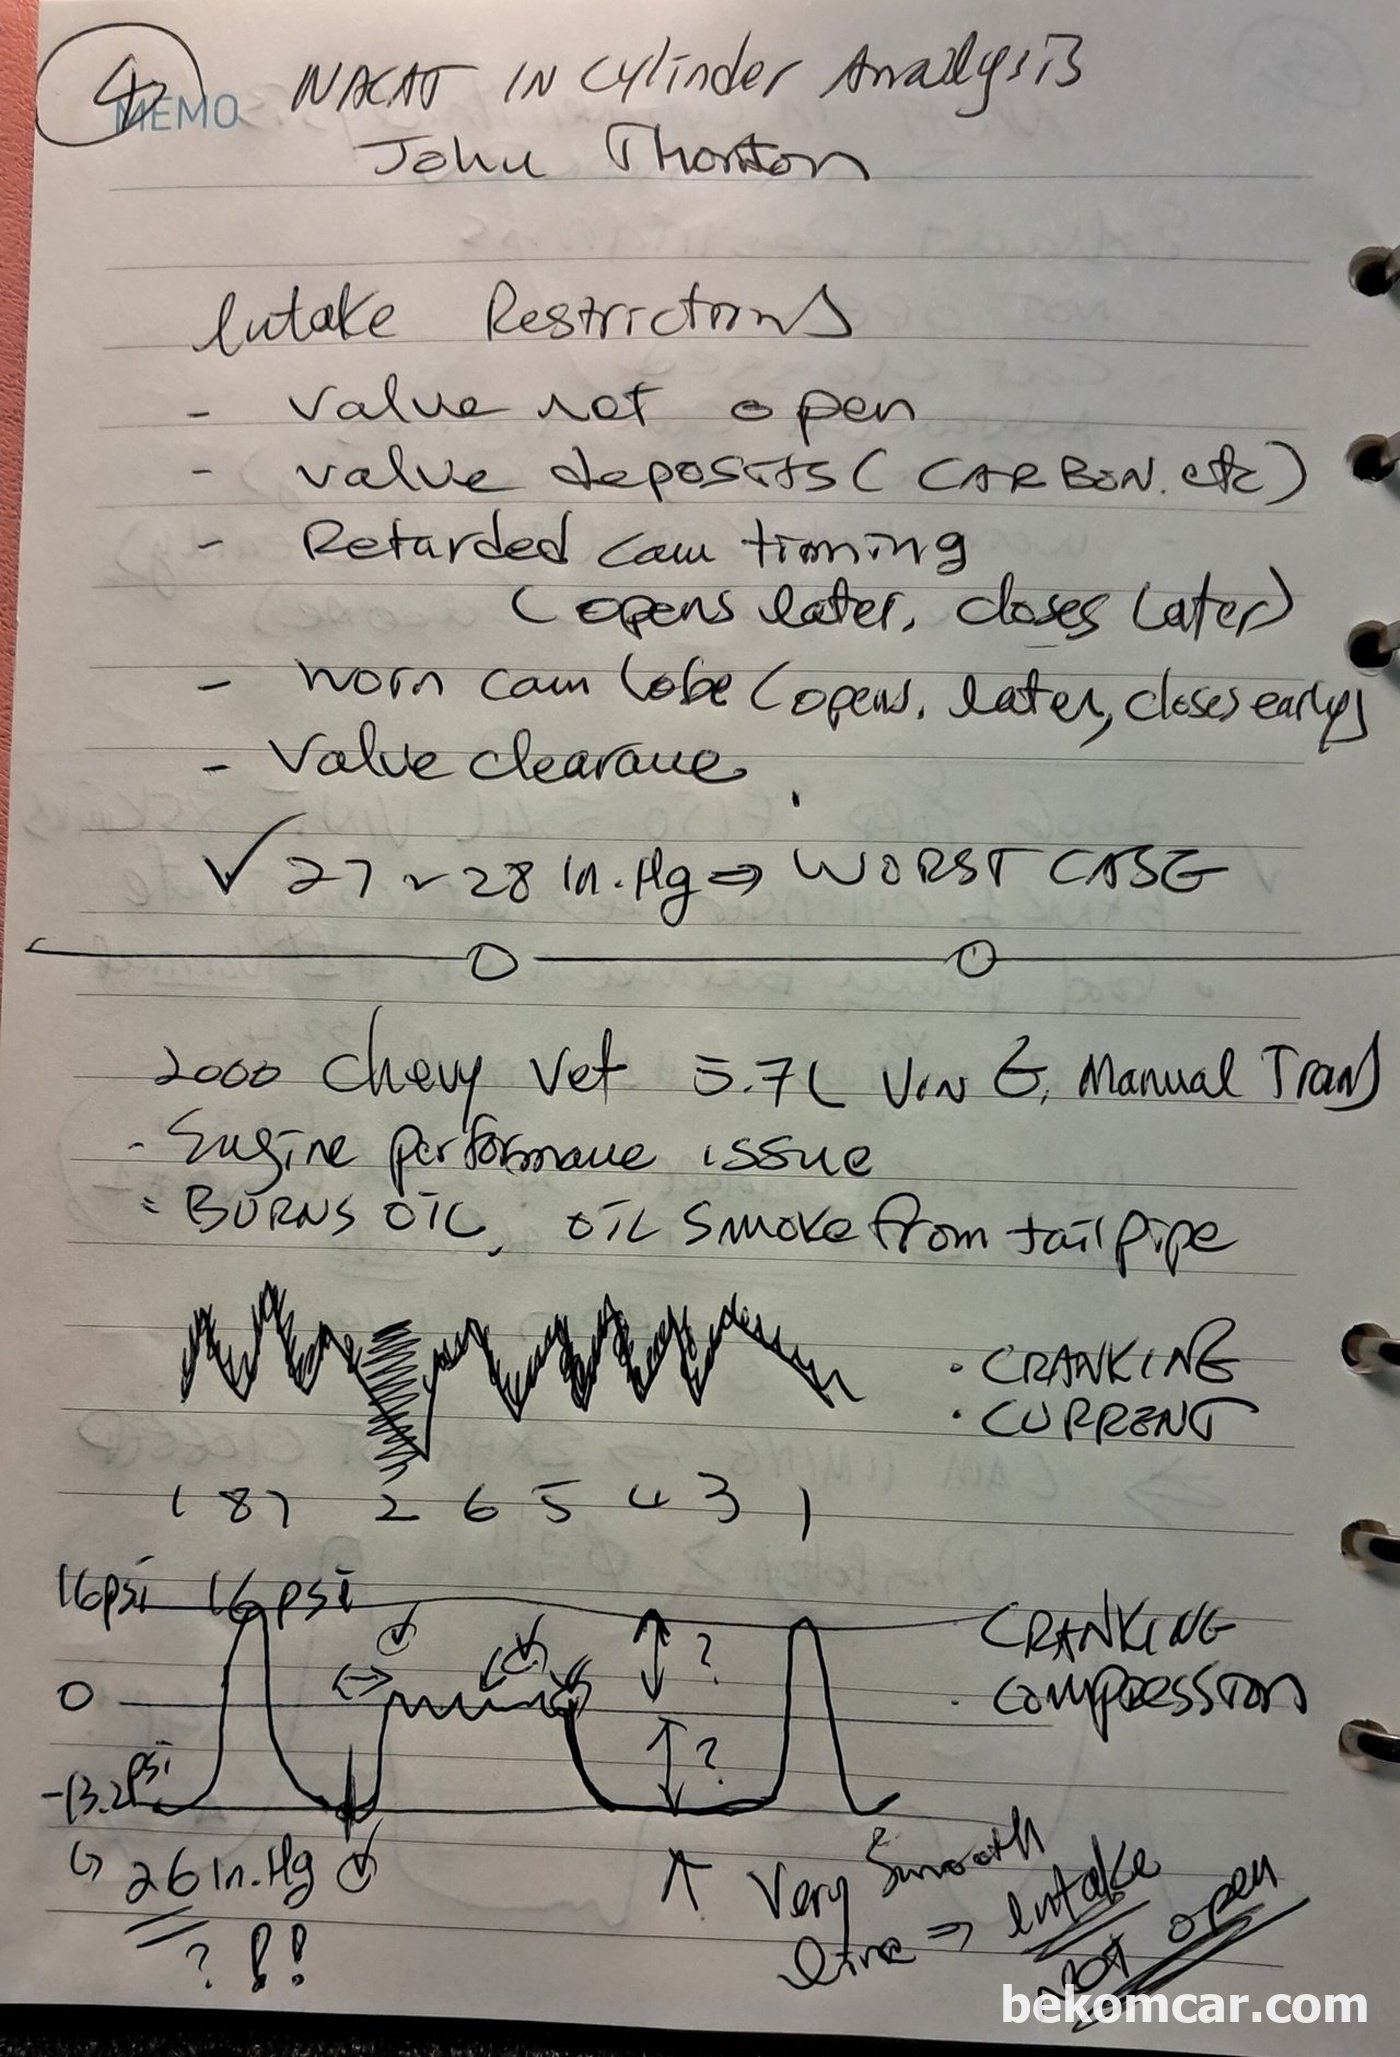 4
MEMO
NACAT IN Cylinder Analysis
John Thornton
Intake Restrictions
- valve not open
- valve deposits (CARBON. etc)
- Retarded cam timing
(opens later, closes later)
- worn cam lobe (opens. later, closes early)
- Valve clearance
✓ 27 ~ 28 in.Hg ⇒ WORST CASE
2000 Chevy Vet 5.7L VIN G, Manual Trans
- Engine performance issue
- BURNS OIL, OIL smoke from tail pipe
· CRANKING
· CURRENT
1 8 7 2 6 5 4 3 1
16psi 16psi
CRANKING
· compression
0
? ?
-13.2psi
↳ 26 in.Hg
? !!
↑ Very Smooth
line ⇒ intake
NOT open
bekomcar.com